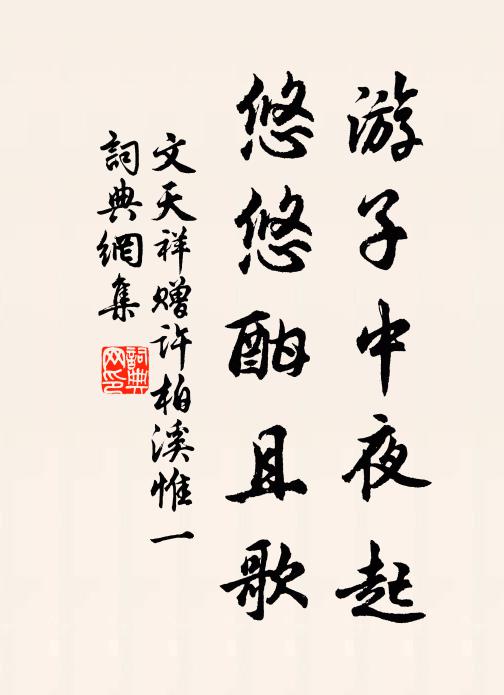 游子中夜起
悠悠酣且歌
文天祥赠许柏溪惟一
詞典網集
詞典网印